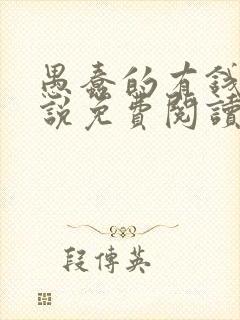 愚蠢的有錢
說免費閱讀
段傳英